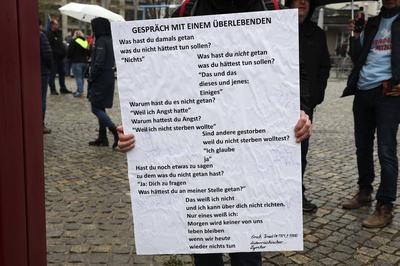 GESPRÄCH MIT EINEM ÜBERLEBENDEN
Was hast du damals getan
was du nicht hättest tun sollen?
"Nichts"
Was hast du nicht getan
was du hättest tun sollen?
"Das und das
dieses und jenes:
Einiges"
Warum hast du es nicht getan?
"Weil ich Angst hatte"
Warum hattest du Angst?
"Weil ich nicht sterben wollte"
Sind andere gestorben
weil du nicht sterben wolltest?
"Ich glaube
ja"
Hast du noch etwas zu sagen
zu dem was du nicht getan hast?
"Ja: Dich zu fragen
Was hättest du an meiner Stelle getan?"
Das weiß ich nicht
und ich kann über dich nicht richten.
Nur eines weiß ich:
Morgen wird keiner von uns
leben bleiben
wenn wir heute
wieder nichts tun
Erich Fried
österreichischer
Lyriker